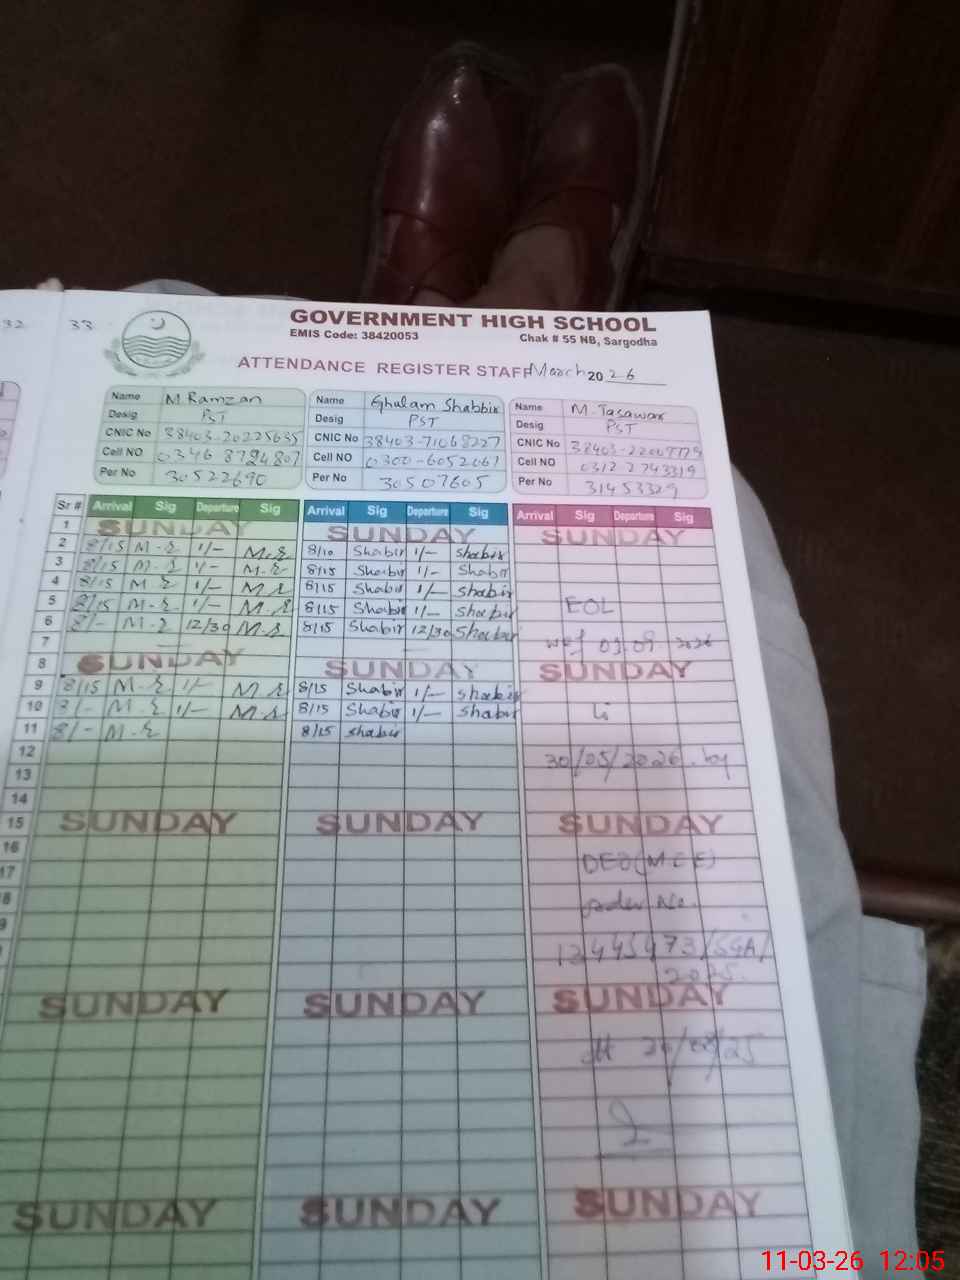 32 33
GOVERNMENT HIGH SCHOOL
EMIS Code: 38420053 Chak # 55 NB, Sargodha
ATTENDANCE REGISTER STAFF March 2026
Name M Ramzan
Desig PST
CNIC No 38403-20225635
Cell NO 0346 8794807
Per No 30522690
Name Ghulam Shabbir
Desig PST
CNIC No 38403-71068227
Cell NO 0300-6052061
Per No 30507605
Name M. Tasawar
Desig PST
CNIC No
Cell NO 0312 2743319
Per No 31453329
Sr # Arrival Sig Departure Sig Arrival Sig Departure Sig Arrival Sig Departure Sig
1 SUNDAY SUNDAY SUNDAY
2 8/15 M-R 1/- M.R 8/10 Shabir 1/- Shabir
3 8/15 M-R 1/- M.R 8/15 Shabir 1/- Shabir
4 8/15 M-R 1/- M.R 8/15 Shabir 1/- Shabir
5 8/15 M-R 1/- M.R 8/15 Shabir 1/- Shabir EOL
6 8/- M-R 12/30 M.R 8/15 Shabir 12/30 Shabir
7 wef 2026
8 SUNDAY SUNDAY SUNDAY
9 8/15 M-R 1/- M.R 8/15 Shabir 1/- Shabir
10 8/- M-R 1/- M.R 8/15 Shabir 1/- Shabir
11 8/- M-R 8/15 Shabir
12 30/05/2026 by
13
14
15 SUNDAY SUNDAY SUNDAY
16 DEO(M.EE)
17
18 order No.
9
13445473/SGA/
2025
SUNDAY SUNDAY SUNDAY
dt
SUNDAY SUNDAY SUNDAY
11-03-26 12:05